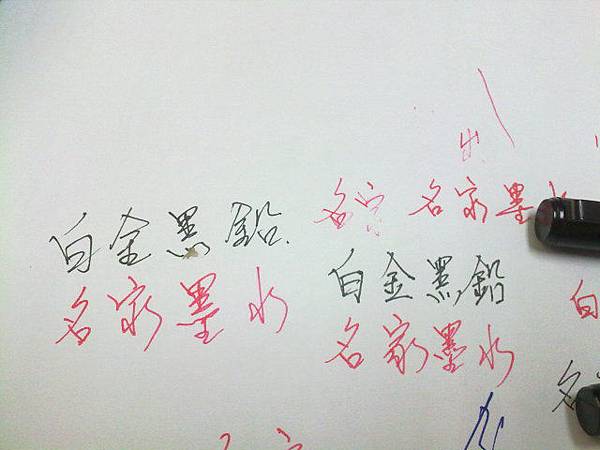 白金黑鉛
名家墨水
出
名家 名家墨水
白金黑鉛
名家墨水
白
名